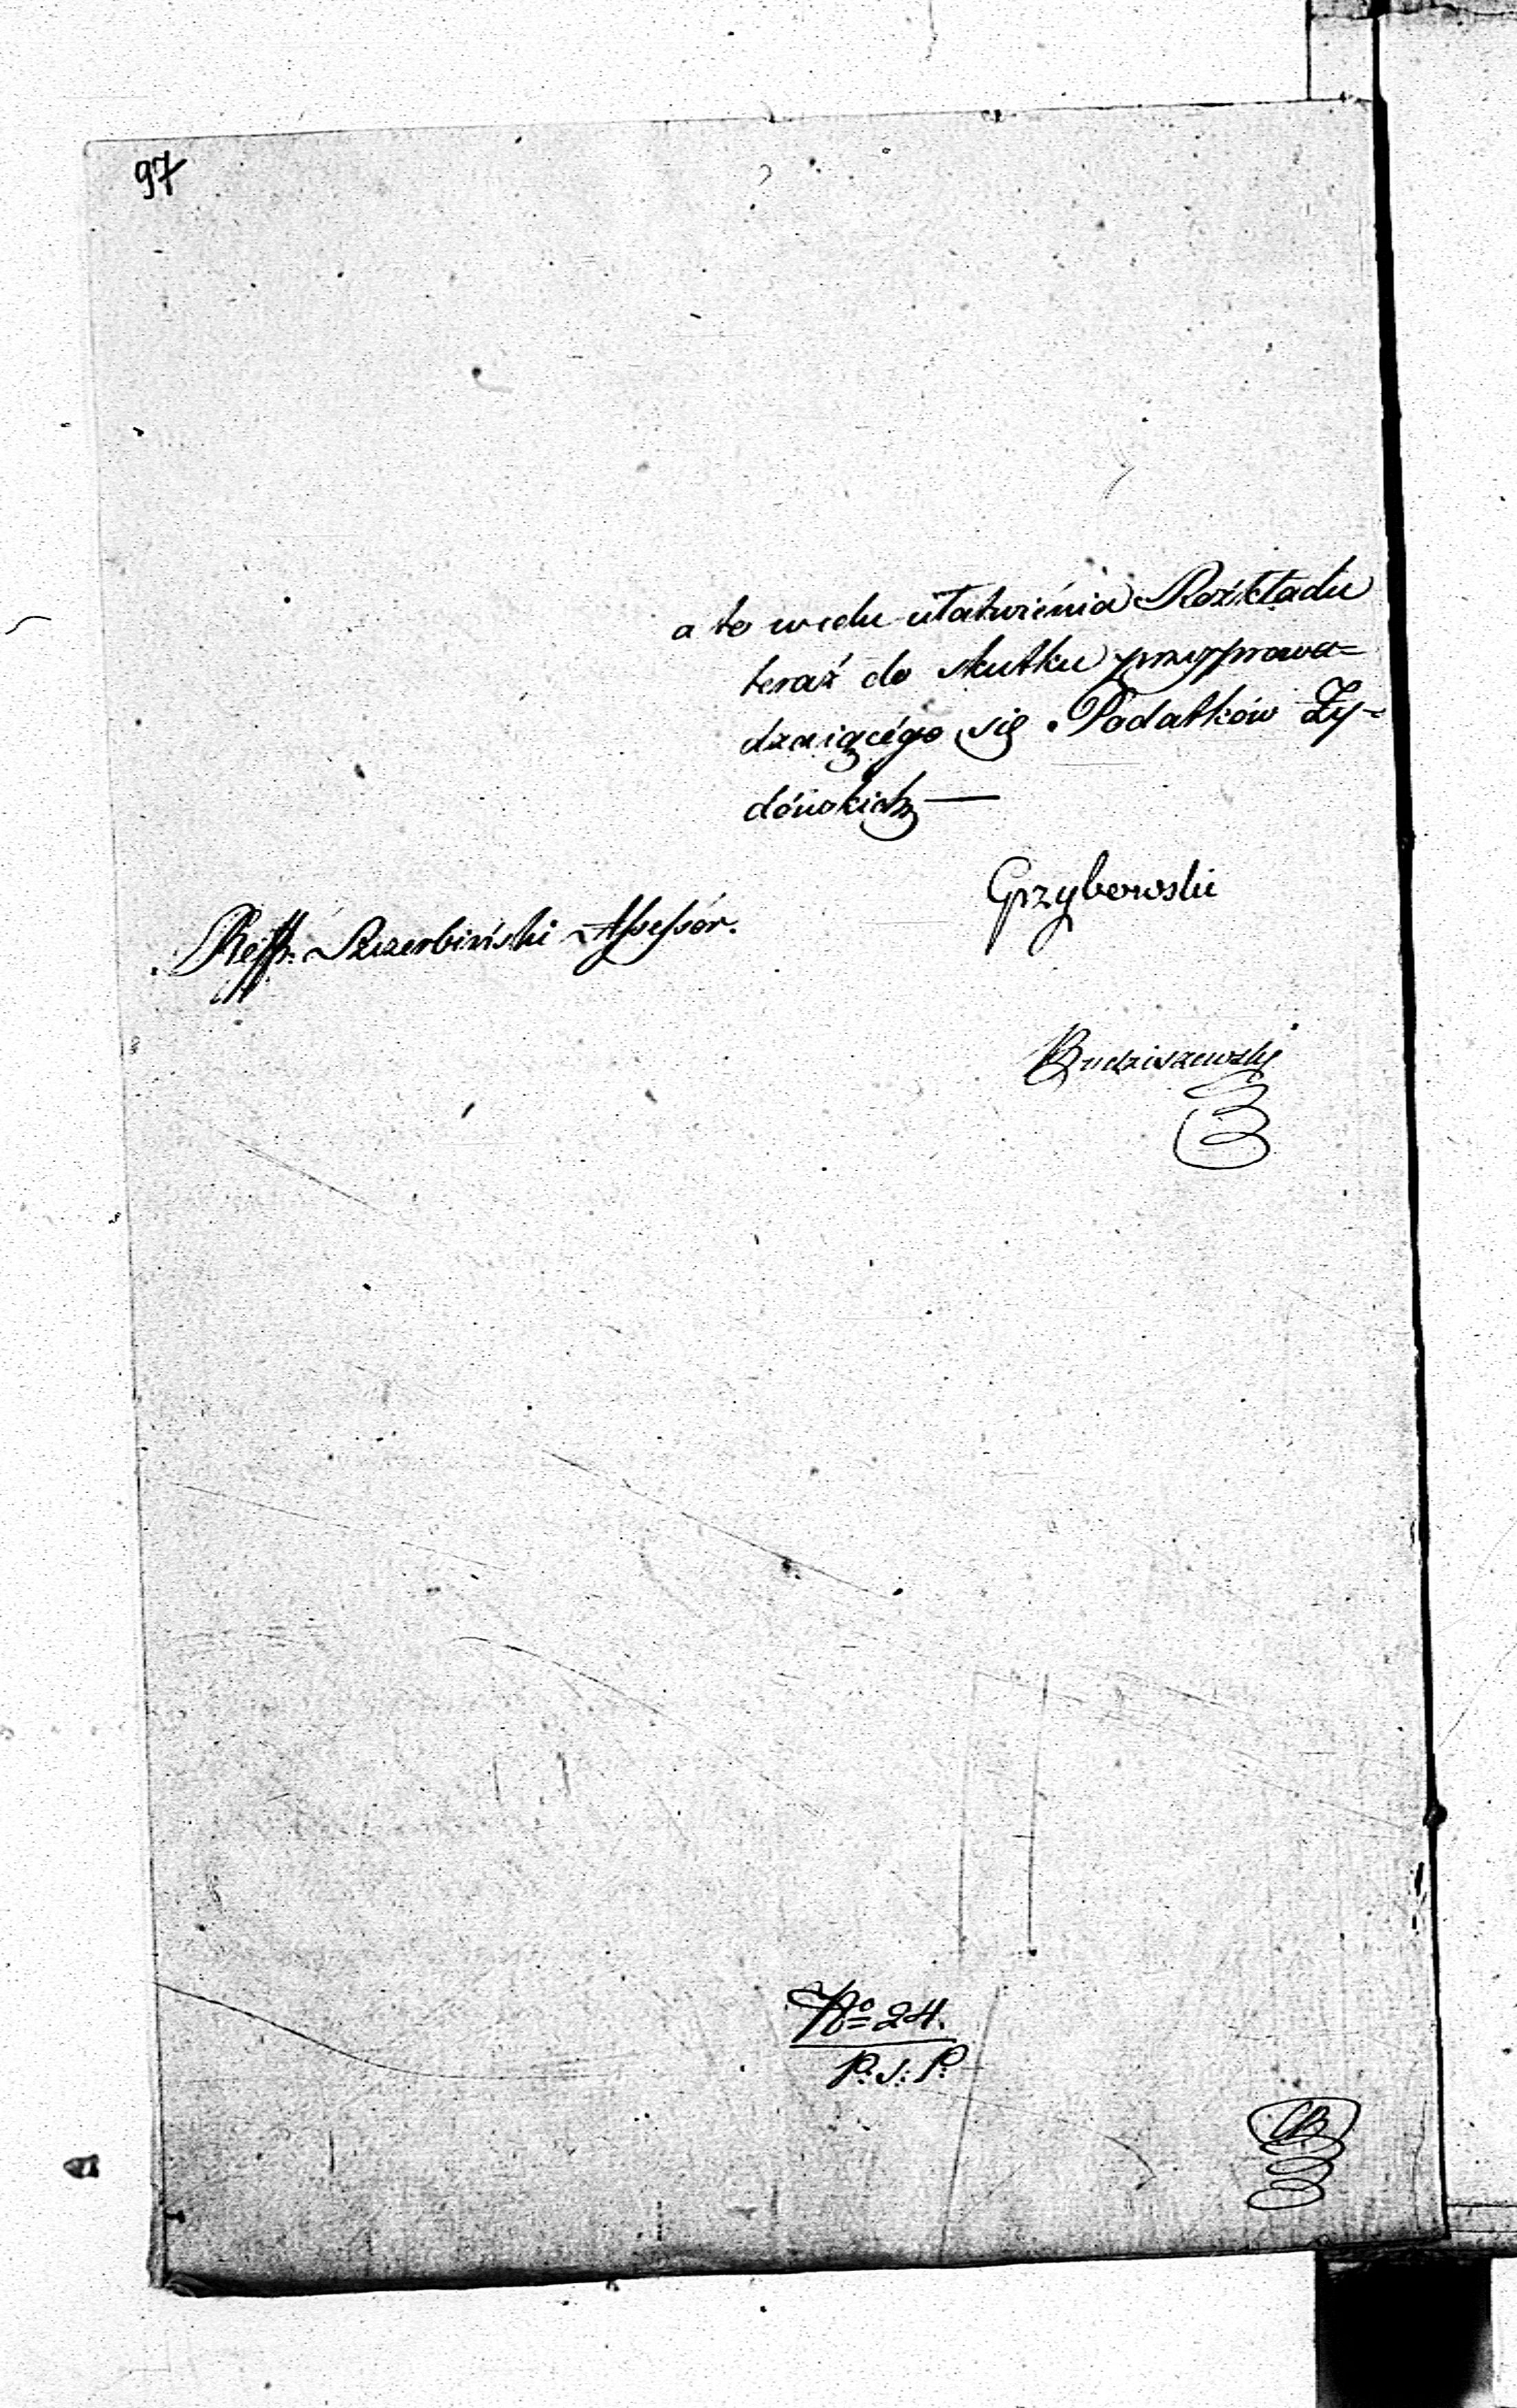 97
a to w celu ułatwienia Rozkładu
teraź do skutku przyprowa=
dzaiącégo się Podatków Ży=
dówskich —
Grzybowski
Reff: Szczerbiński Assessór.
Budziszewski
No 24.
P: J: P: